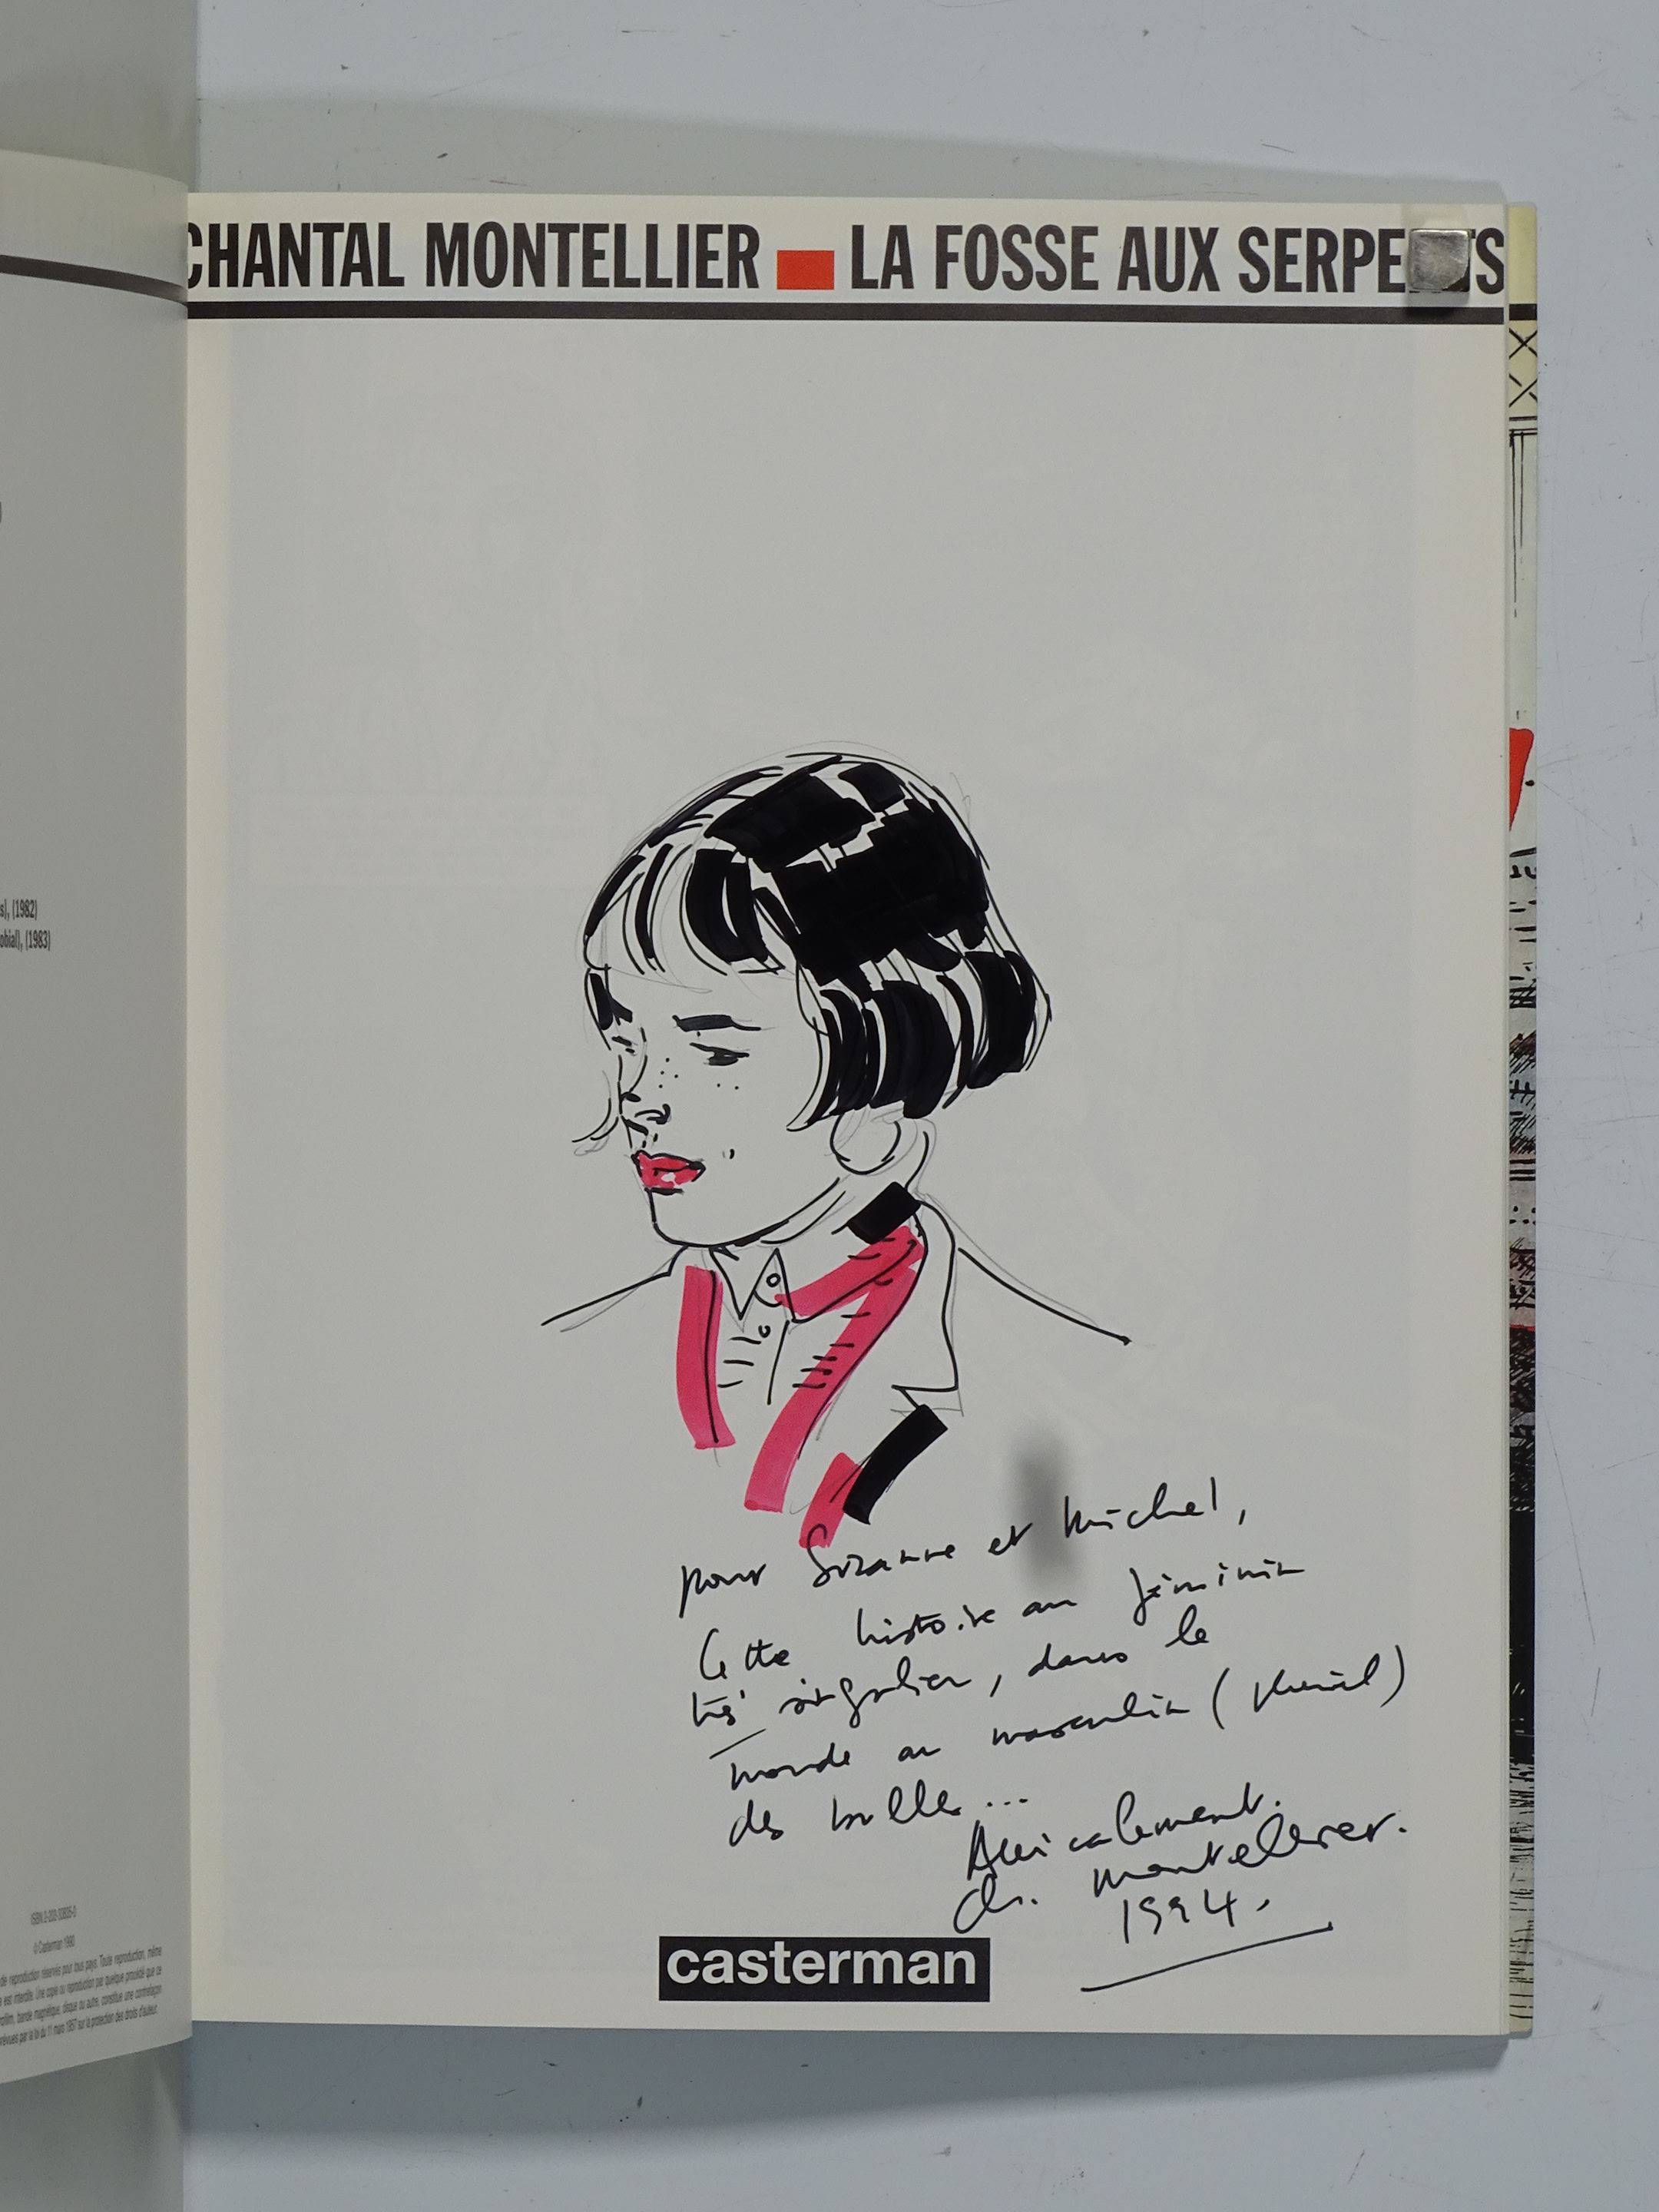 s), (1982)
obial), (1983)
ISBN 2-203-33835-0
© Casterman 1990
de reproduction réservés pour tous pays. Toute reproduction, même
e est interdite. Une copie ou reproduction par quelque procédé que ce
rofilm, bande magnétique, disque ou autre, constitue une contrefaçon
révues par la loi du 11 mars 1957 sur la protection des droits d'auteur.
CHANTAL MONTELLIER LA FOSSE AUX SERPE TS
pour Suzanne et Michel,
Cette histoire au féminin
très singulier, dans le
monde au masculin (pluriel)
des bulles...
Amicalement.
Ch. Montellier.
1994.
casterman